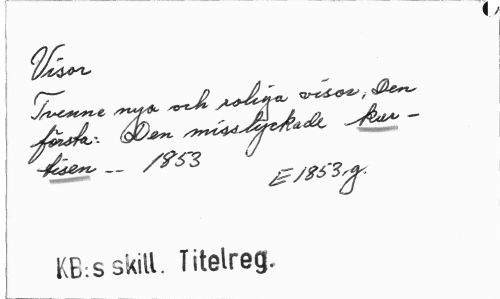 Visor
Tvenne nya och roliga visor, Den
första: Den misslyckade kur-
tisen -- 1853
E 1853.g.
KB:s skill. Titelreg.